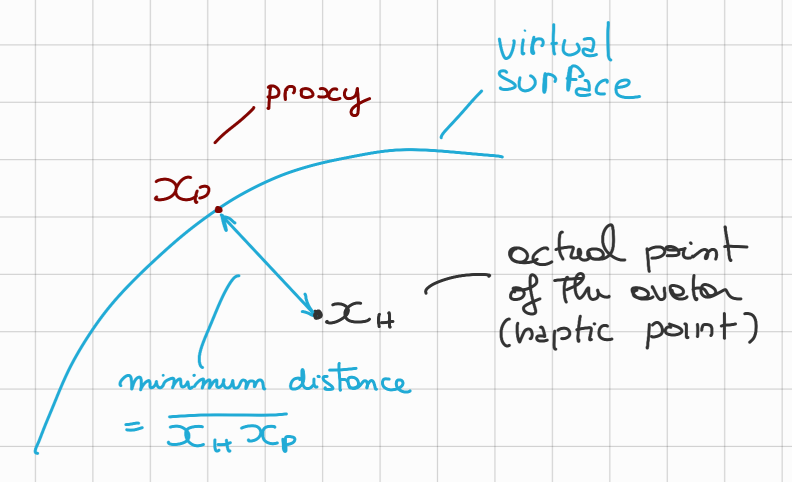 virtual
surface
proxy
xp
actual point
of the avatar
(haptic point)
xH
minimum distance
= xH xp